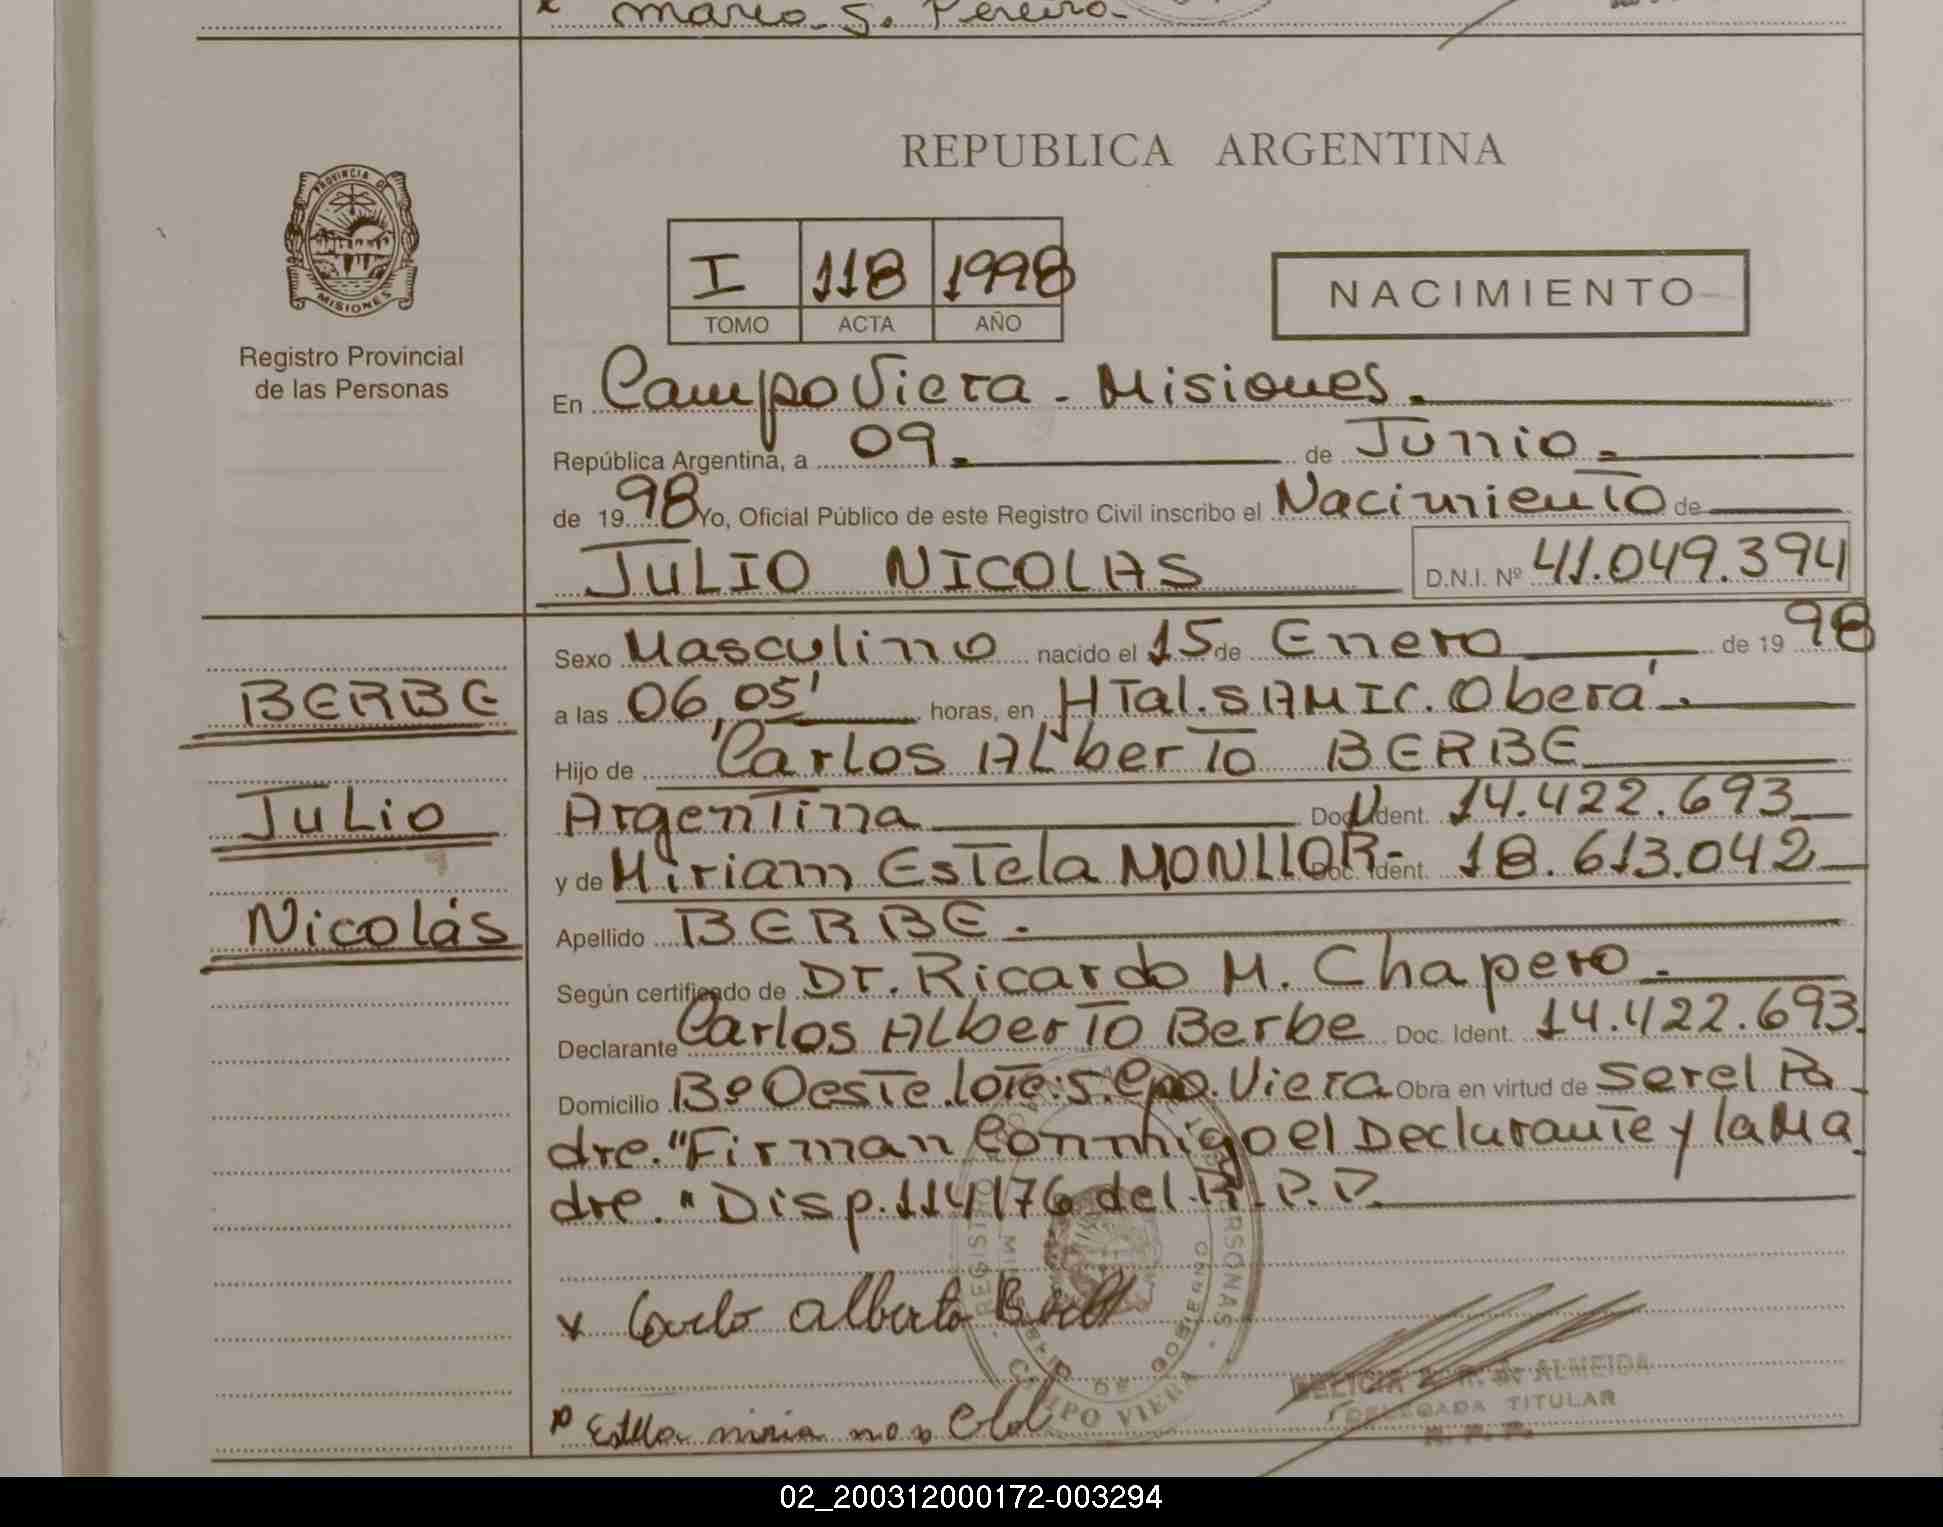 Mario S. Pereira
REPUBLICA ARGENTINA
PROVINCIA DE
MISIONES
Registro Provincial
de las Personas
I 118 1998
TOMO ACTA AÑO
NACIMIENTO
En Campo Viera - Misiones.
República Argentina, a 09. de Junio.
de 1998 Yo, Oficial Público de este Registro Civil inscribo el Nacimiento de
JULIO NICOLAS D.N.I. Nº 41.049.394
Sexo Masculino nacido el 15 de Enero de 1998
BERBE
a las 06,05' horas, en HTal. SAMIC. Oberá.
Hijo de Carlos ALberTo BERBE
Julio
ArgenTina Doc. Ident. 14.422.693
y de Miriam Estela MONLLOR- Doc. Ident. 18.613.042
Nicolás
Apellido BERBE.
Según certificado de Dr. Ricardo M. Chapero.
Declarante Carlos ALberTo Berbe Doc. Ident. 14.422.693.
Domicilio Bº Oeste.lote:5.Cpo.Viera Obra en virtud de ser el Pa
dre."Firman Conmigo el Declarante y la Ma
dre."Disp.114/76 del.R.P.P.
REGISTRO PERSONAS
MINISTERIO DE GOBIERNO
CAMPO VIERA
Alberto
Estela
DE ALMEIDA
DELEGADA TITULAR
R. P. P.
02_200312000172-003294